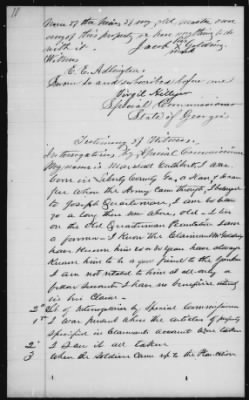 11
None of the heirs of my old master own
any of this property or has anything to do
with it. Jacob his X Golding
mark
Witness
E. E. Adlington
Sworn to and subscribed before me
Virgil Hillyer
Special Commissioner
State of Georgia
Testimony of Witness.
Interrogations by Special Commissioner
My name is I was
born in Liberty County Ga, a slave &
when the Army came through, I belonged
to Joseph I am be tween
a long time above, old - I live
on the Old Quarterman Plantation I am
a farmer - I know the Claimant Mr Golding
have known him to be have always
known him to be a good friend to the Yankee
I am not related to him at all only a
fellow servant I have no beneficial interest
in his Claim -
2d Set of interrogations by Special Commissioner
1st I was present when the articles of property
specified in Claimants account were taken
2d I saw it all taken
3 When the Soldiers came up to the Plantation